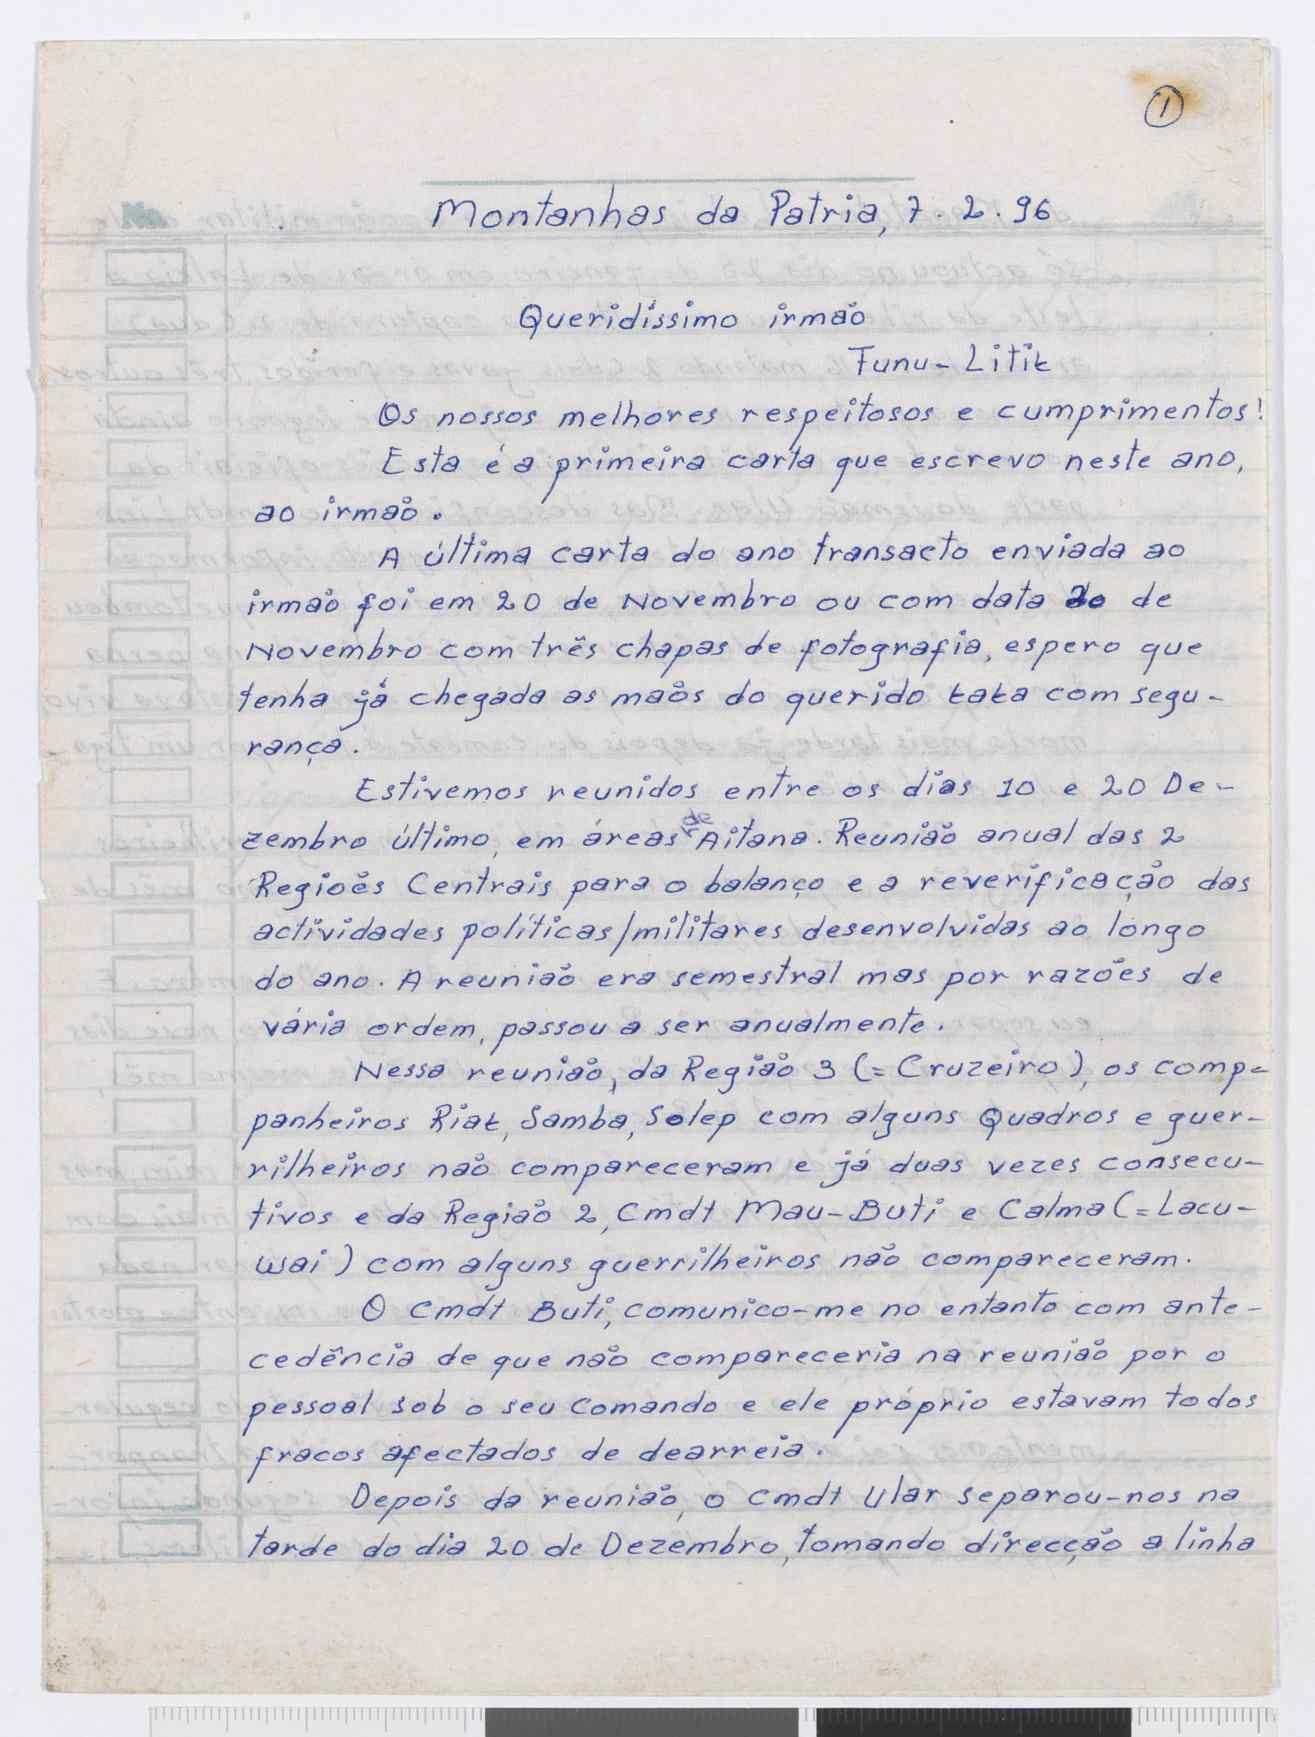 1
Montanhas da Patria, 7. 2. 96
Queridíssimo irmão
Funu-Litik
Os nossos melhores respeitosos e cumprimentos!
Esta é a primeira carta que escrevo neste ano,
ao irmão.
A última carta do ano transacto enviada ao
irmão foi em 20 de Novembro ou com data 20 de
Novembro com três chapas de fotografia, espero que
tenha já chegada as maõs do querido kaka com segu-
rança.
Estivemos reunidos entre os dias 10 e 20 De-
zembro último, em áreas de Aitana. Reunião anual das 2
Regioẽs Centrais para o balanço e a reverificação das
actividades políticas/militares desenvolvidas ao longo
do ano. A reunião era semestral mas por razões de
vária ordem, passou a ser anualmente.
Nessa reunião, da Região 3 (= Cruzeiro), os comp-
panheiros Riak, Samba, Solep com alguns Quadros e guer-
rilheiros não compareceram e já duas vezes consecu-
tivos e da Região 2, Cmdt Mau-Buti e Calma (= Lacu-
wai) com alguns guerrilheiros não compareceram.
O Cmdt Buti, comunico-me no entanto com ante-
cedência de que não compareceria na reunião por o
pessoal sob o seu comando e ele próprio estavam todos
fracos afectados de dearreia.
Depois da reunião, o Cmdt Ular separou-nos na
tarde do dia 20 de Dezembro, tomando direcção a linha